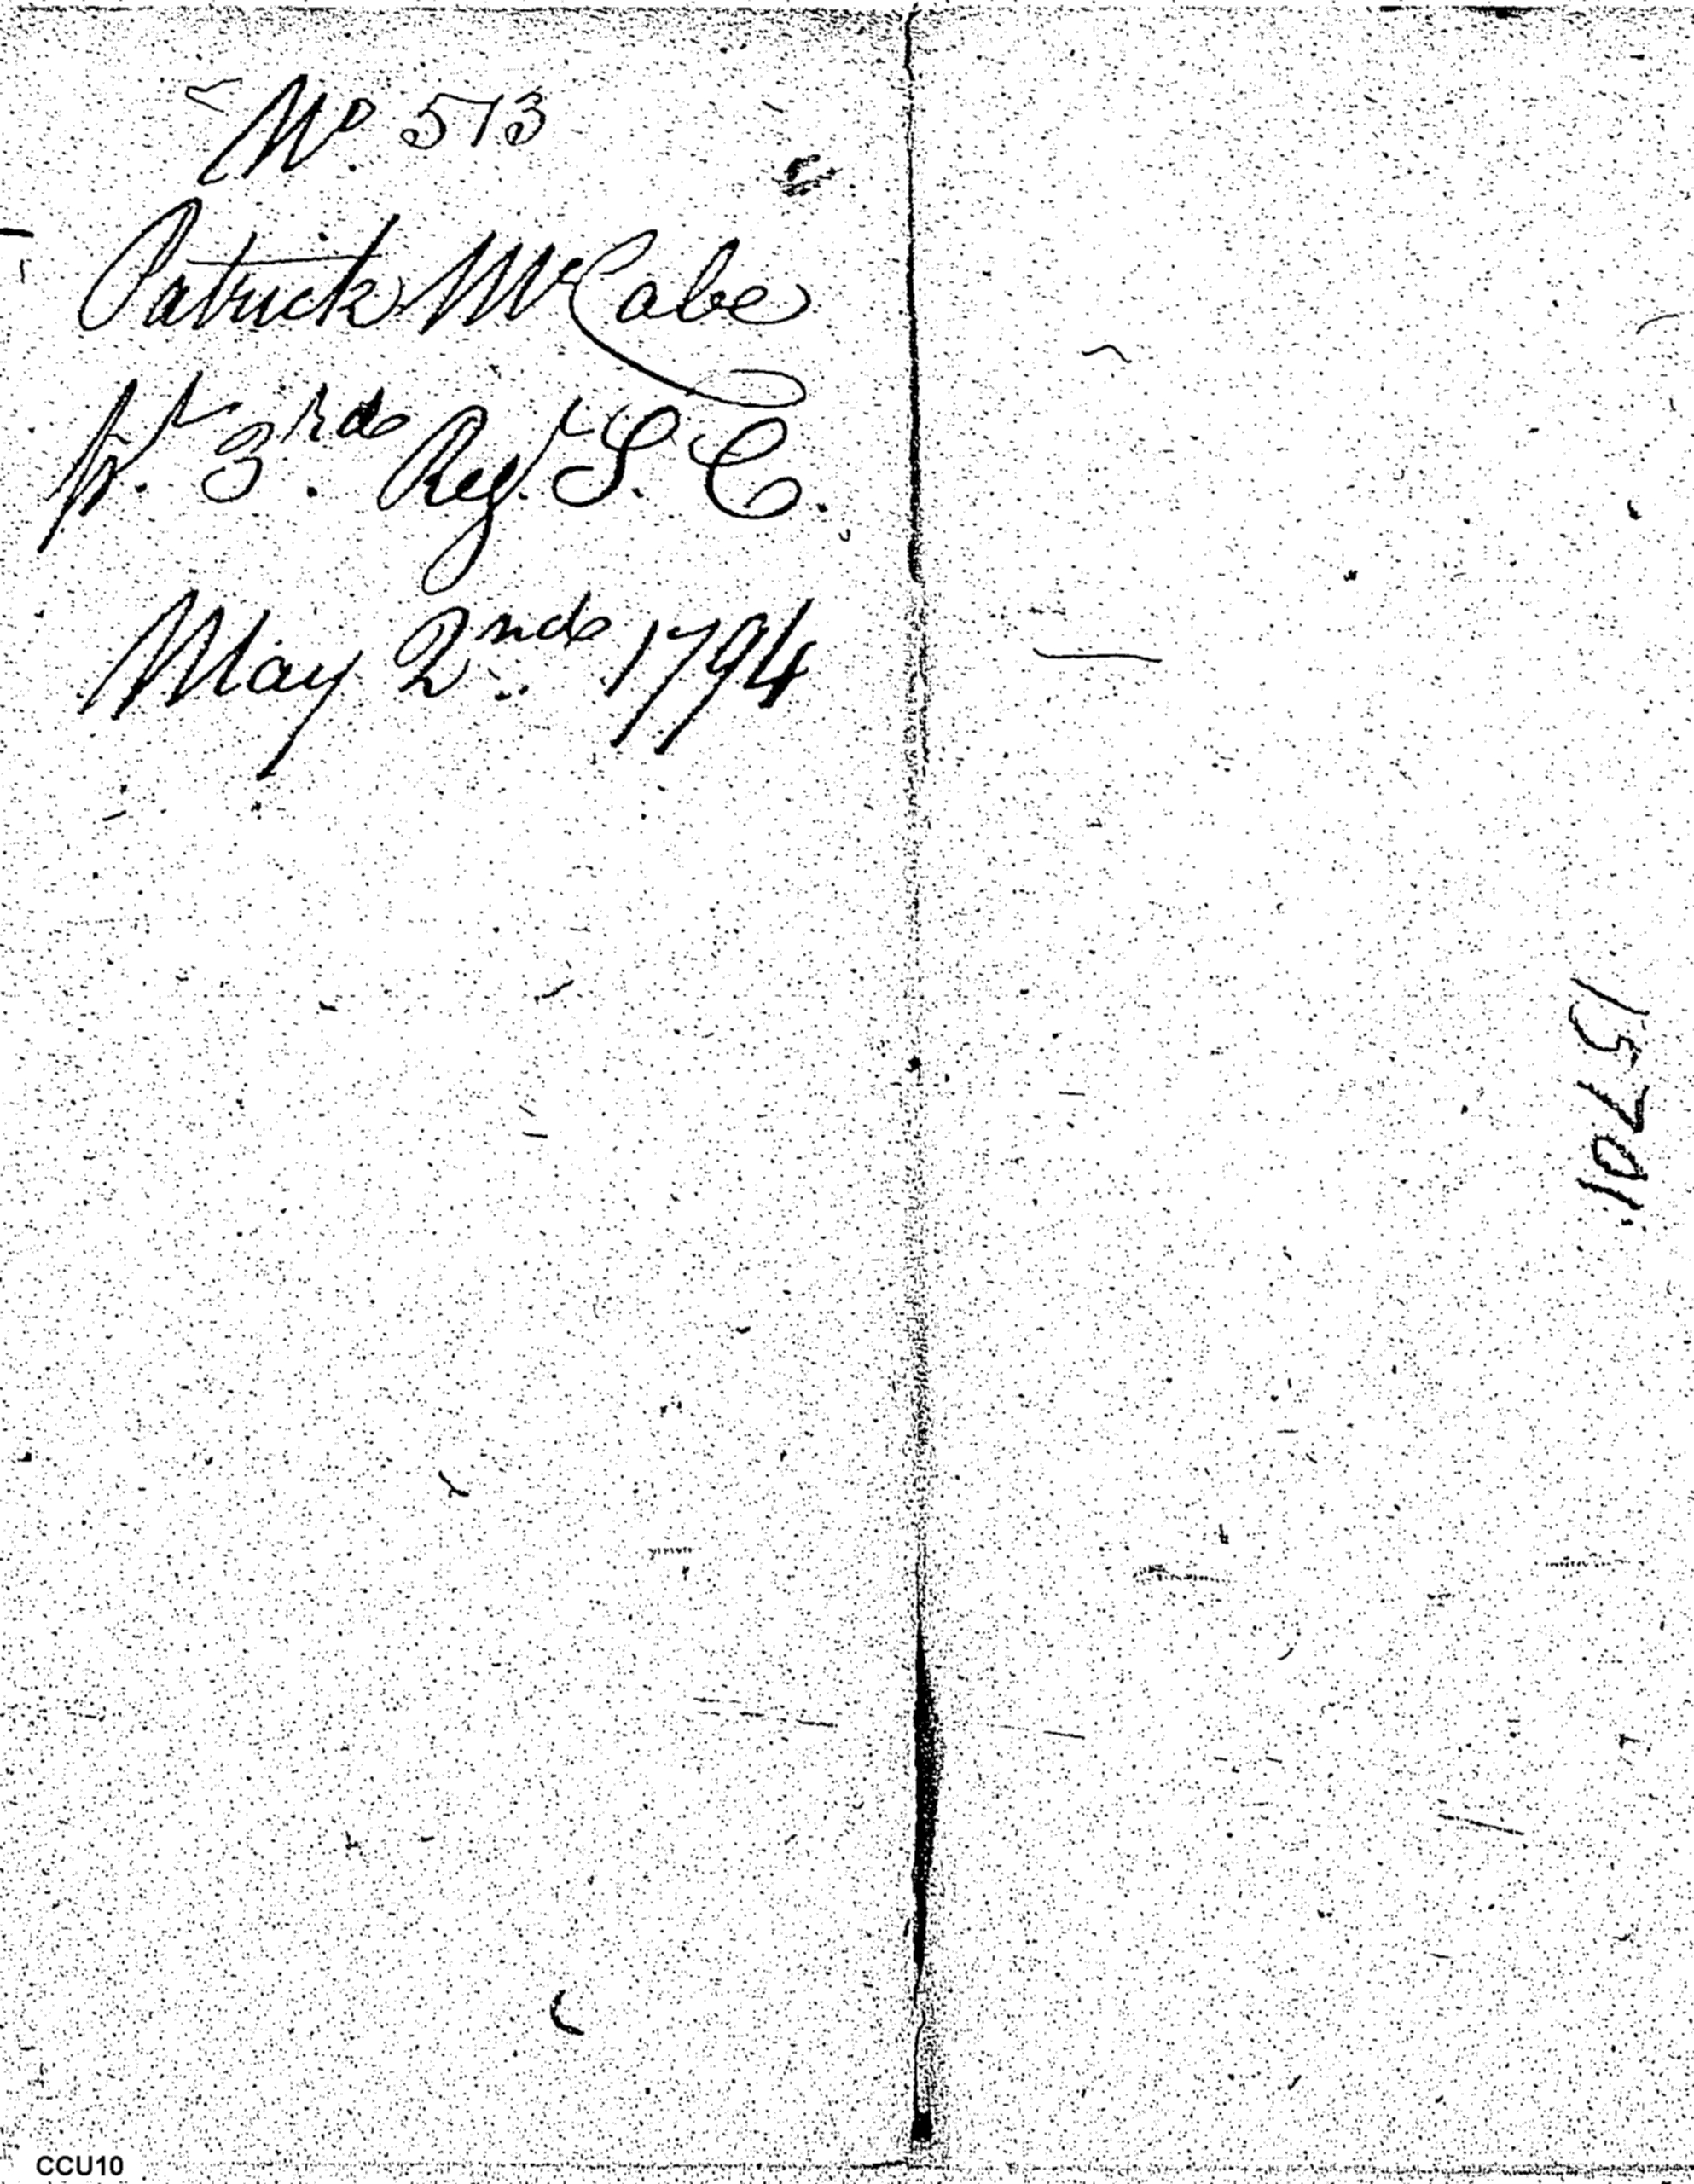 No. 573
Patrick McCabe
pt. 3rd. Regt. S. C.
May 2nd. 1794
15701
CCU10